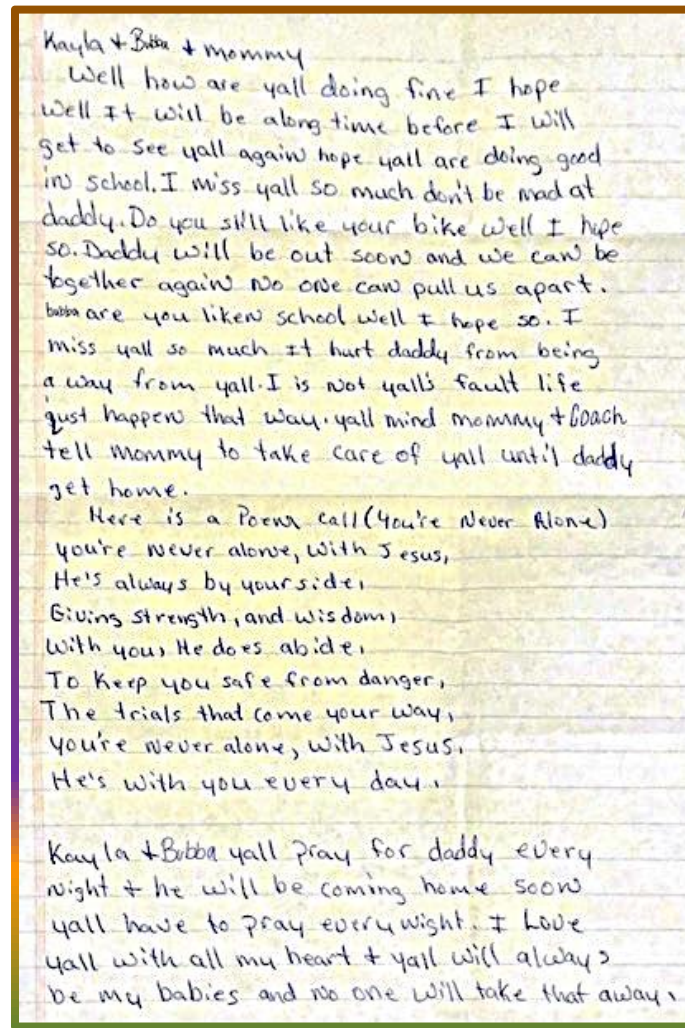 Kayla + Bubba + mommy
Well how are yall doing fine I hope
well It will be along time before I will
get to see yall again hope yall are doing good
in school. I miss yall so much don't be mad at
daddy. Do you still like your bike well I hope
so. Daddy will be out soon and we can be
together again No one can pull us apart.
bubba are you liken school well I hope so. I
miss yall so much It hurt daddy from being
a way from yall. I is Not yall's fault life
just happen that way. yall mind mommy + Coach
tell mommy to take care of yall until daddy
get home.
Here is a Poem call (You're Never Alone)
you're never alone, with Jesus,
He's always by yourside,
Giving strength, and wisdom,
with you, He does abide,
To keep you safe from danger,
The trials that come your way,
you're never alone, with Jesus,
He's with you every day.
Kayla + Bubba yall pray for daddy every
night + he will be coming home soon
yall have to pray everynight. I Love
yall with all my heart + yall will always
be my babies and no one will take that away.